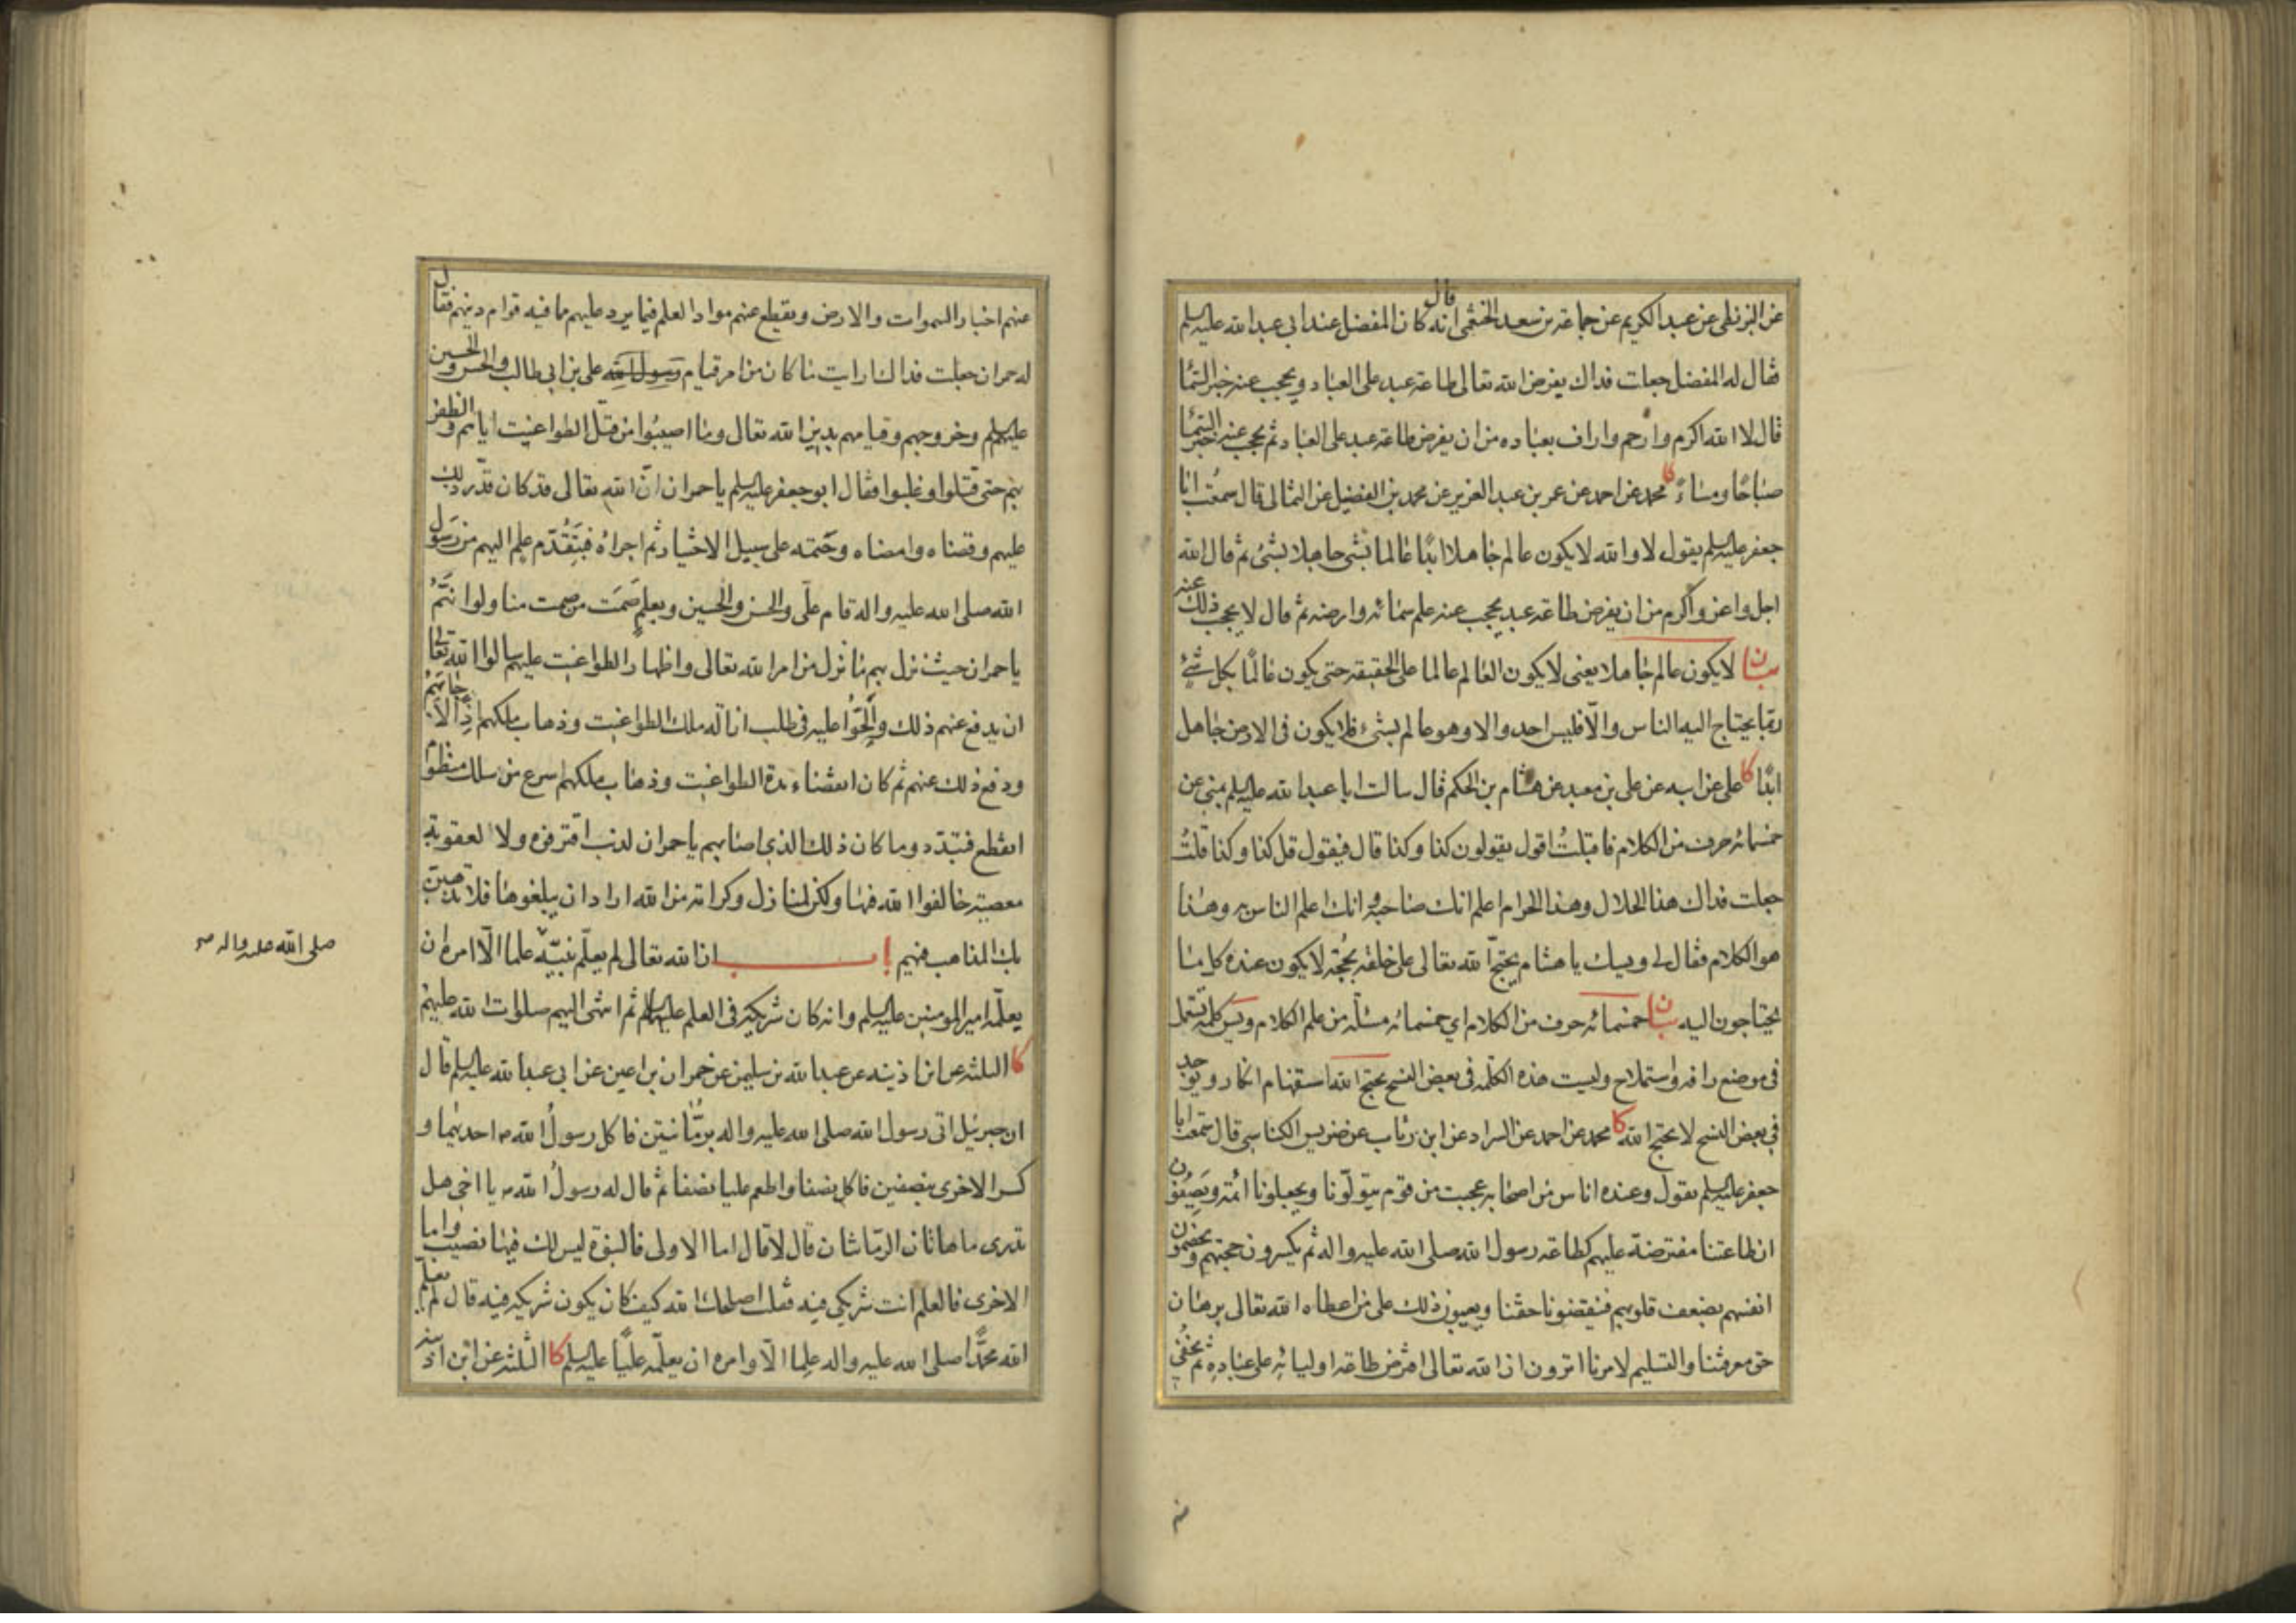 عن البزنطي عن عبد الكريم عن جماعة بن سعد الخثعمي انه قال كان المفضل عند ابي عبد الله عليه السلم
فقال له المفضل جعلت فداك يفرض الله تعالى طاعة عبد على العباد ويحجب عنه خبر السماء
قال لا الله اكرم وارحم واراف بعباده من ان يفرض طاعة عبد على العباد ثم يحجب عنه خبر السماء
صباحًا ومساءً كا محمد عن احمد عن عمر بن عبد العزيز عن محمد بن الفضيل عن الثمالي قال سمعت ابا
جعفر عليه السلم يقول لا والله لا يكون عالم جاهلا ابدًا عالما بشئ جاهلا بشئ ثم قال الله
اجل واعز واكرم من ان يفرض طاعة عبد يحجب عنه علم سمائه وارضه ثم قال لا يحجب ذلك عنه
بيان لا يكون عالم جاهلا يعني لا يكون العالم عالما على الحقيقة حتى يكون عالمًا بكل شئ
مما يحتاج اليه الناس والّا فليس احد والا وهو عالم بشئ فلا يكون في الارض جاهل
ابدًا كا علي عن ابيه عن علي بن معبد عن هشام بن الحكم قال سالت ابا عبد الله عليه السلم بمنى عن
خمسمائة حرف من الكلام فاقبلت اقول يقولون كذا وكذا قال فيقول قل كذا وكذا قلت
جعلت فداك هذا الحلال وهذا الحرام اعلم انك صاحبه وانك اعلم الناس به وهذا
هو الكلام فقال لي ويسك يا هشام يحتجّ الله تعالى على خلقه بحُجّة لا يكون عنده كل ما
يحتاجون اليه بيان خمسمائة حرف من الكلام اي خمسمائة مسئلة من علم الكلام وويس كلمة تستعمل
في موضع رافة واستملاح وليست هذه الكلمة في بعض النسخ يحتج الله استفهام انكار ويوجد
في بعض النسخ لا يحتج الله كا محمد عن احمد عن السراد عن ابن رئاب عن ضريس الكناسي قال سمعت ابا
جعفر عليه السلم يقول وعنده اناس من اصحابه عجبت من قوم يتولّونا ويجعلونا ائمة ويصفون
ان طاعتنا مفترضة عليهم كطاعة رسول الله صلى الله عليه واله ثم يكسرون حجتهم ويخصمون
انفسهم بضعف قلوبهم فينقصونا حقنا ويعيبون ذلك على من اعطاه الله تعالى برهان
حق معرفتنا والتسليم لامرنا اترون ان الله تعالى افترض طاعة اوليائه على عباده ثم يخفي
عنهم اخبار السموات والارض ويقطع عنهم مواد العلم فيما يرد عليهم مما فيه قوام دينهم فقال
له حمران جعلت فداك ارايت ما كان من امر قيام رسول الله علي بن ابي طالب والحسن والحسين
عليهم السلم وخروجهم وقيامهم بدين الله تعالى وما اصيبُوا من قتل الطواغيت اياهم والظفر
بهم حتى قُتلوا وغلبوا فقال ابو جعفر عليه السلم يا حمران انّ الله تعالى قد كان قدّر ذلك
عليهم وقضاه وامضاه وحَتمه على سبيل الاختيار ثم اجراه فبتقدّم علم اليهم من رسول
الله صلى الله عليه واله قام عليّ والحسن والحسين وبعلم صَمَت من صمت منا ولو انهم
يا حمران حيث نزل بهم ما نزل من امر الله تعالى واظهار الطواغيت عليهم سالوا الله تعالى
ان يدفع عنهم ذلك والحّوا عليه في طلب ازالة ملك الطواغيت وذهاب ملكهم اذًا لاجابهم
ودفع ذلك عنهم ثم كان انقضاء مدة الطواغيت وذهاب ملكهم اسرع من سلك منظوم
انقطع فتبدّد وما كان ذلك الذي اصابهم يا حمران لذنب اقترفوه ولا لعقوبة
معصية خالفوا الله فيها ولكن لمنازل وكرامة من الله اراد ان يبلغوها فلا تذهبن
بك المذاهب فيهم باب ان الله تعالى لم يعلّم نبيّه علما الّا امره ان
صلى الله عليه واله صح
يعلّمه امير المومنين عليه السلم وانه كان شريكه في العلم عليهما السلم ثم انتهى اليهم صلوات الله عليهم
كا الثلثة عن ابن اذينه عن عبد الله بن سليمن عن حمران بن اعين عن ابي عبد الله عليه السلم قال
ان جبرئيل اتى رسول الله صلى الله عليه واله برمّانتين فاكل رسولُ الله ص احديهما و
كسر الاخرى بنصفين فاكل نصفا واطعم عليا نصفا ثم قال له رسولُ الله ص يا اخي هل
تدري ما هاتان الرمّانتان قال لا قال اما الاولى فالنبوة ليس لك فيها نصيب واما
الاخرى فالعلم انت شريكي فيه فقلت اصلحك الله كيف كان يكون شريكه فيه قال لم يعلّم
الله محمدًا صلى الله عليه واله علما الّا وامره ان يعلّمه عليًّا عليه السلم كا الثلثة عن ابن اذينه